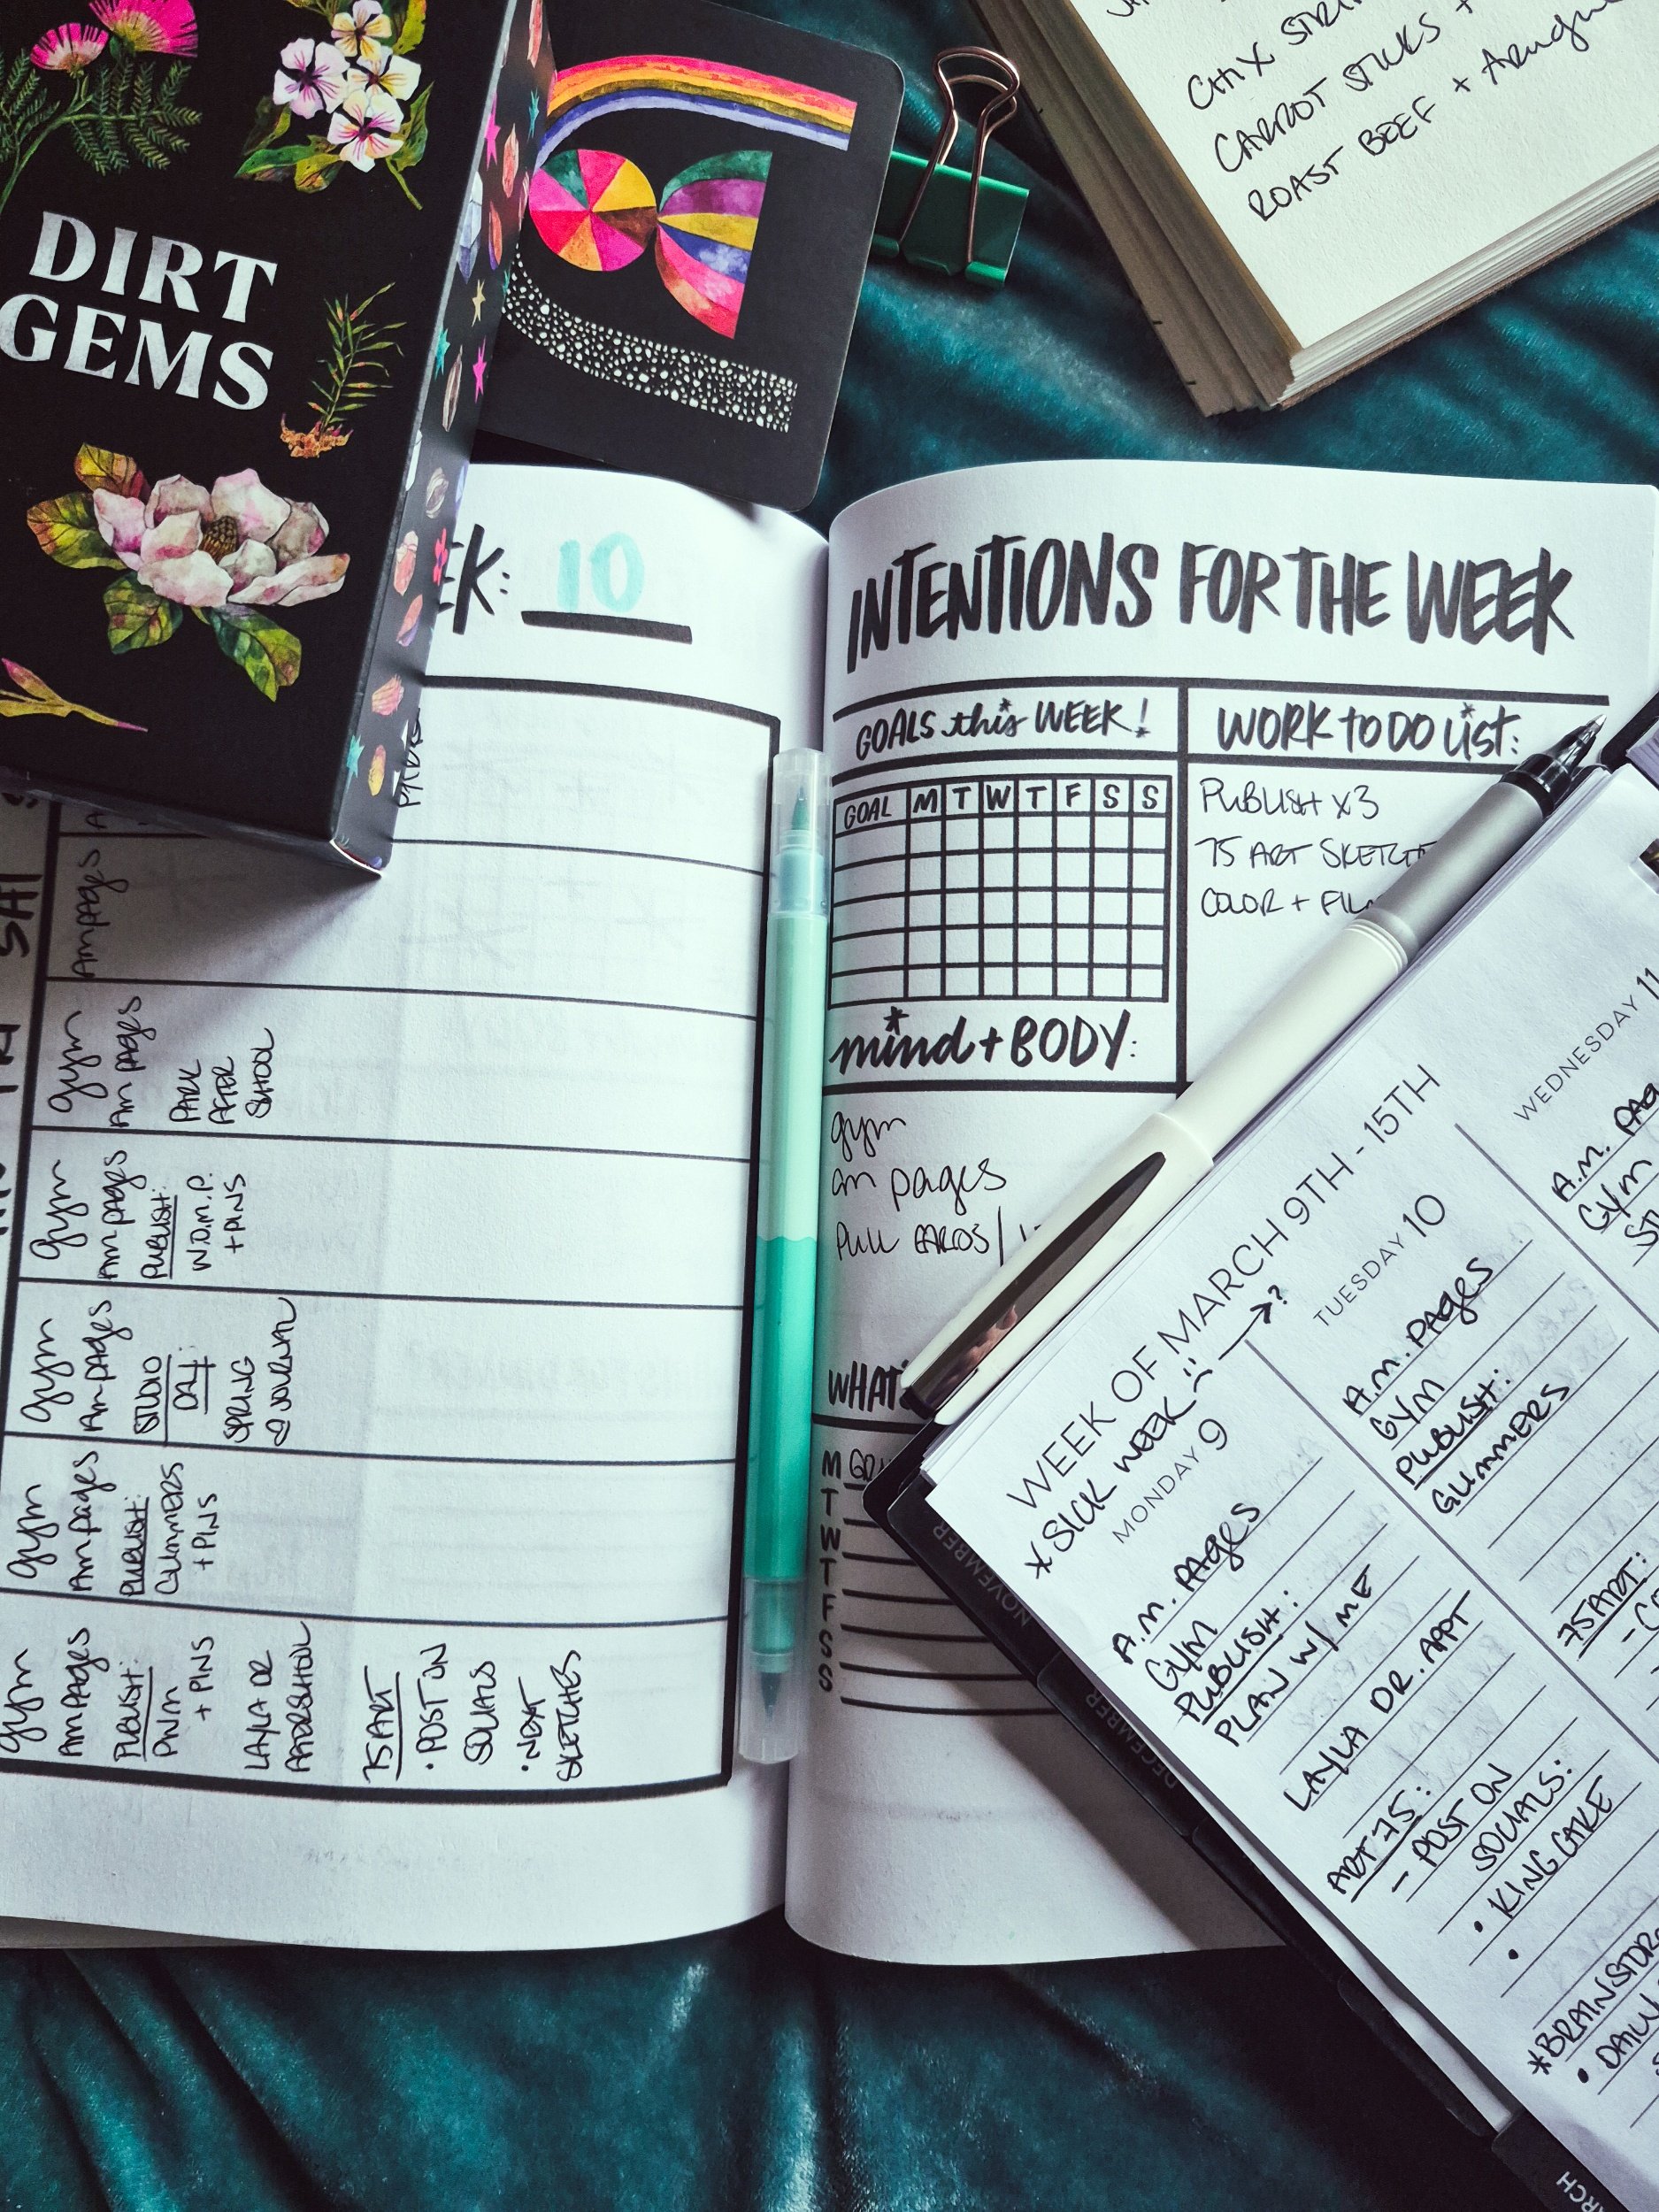 DIRT
GEMS
CARROT STICKS +
ROAST BEEF +
EK: 10
Am pages
gym
Am pages
PARK
AFTER
SCHOOL
gym
Am pages
PUBLISH:
W.O.M.P.
+ PINS
gym
Am pages
STUDIO
DAY:
SPRING
JOURNAL
gym
Am pages
PUBLISH:
GUMMERS
+ PINS
gym
Am pages
PUBLISH:
PWM
+ PINS
LAYLA DR
AFTERSCHOOL
75 ART
• POST ON
SOCIALS
• NEXT
SKETCHES
INTENTIONS FOR THE WEEK
GOALS this WEEK!
GOAL M T W T F S S
mind + BODY:
gym
am pages
PULL CARDS/
WHAT'S
M
T
W
T
F
S
S
WORK to DO list:
PUBLISH x3
75 ART SKETCHE
COLOR +
WEEK OF MARCH 9TH - 15TH
*SICK WEEK :( → ?
MONDAY 9
A.M. PAGES
GYM
PUBLISH:
PLAN W/ ME
LAYLA DR. APPT
ART 75:
- POST ON
SOCIALS:
• KING CAKE
•
*BRAINSTOR
• DAILY
TUESDAY 10
A.M. PAGES
GYM
PUBLISH:
GUMMERS
75 ART:
WEDNESDAY 11
A.M. PAG
GYM
NOVEMBER
DECEMBER
RCH